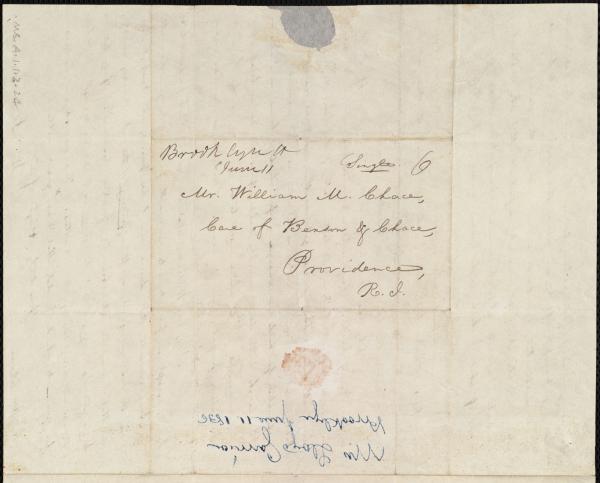 Brooklyn Ct
June 11
Single 6
Mr. William M. Chace,
Care of Benson & Chace,
Providence,
R. I.
Wm Lloyd Garrison
Brooklyn June 11 1836